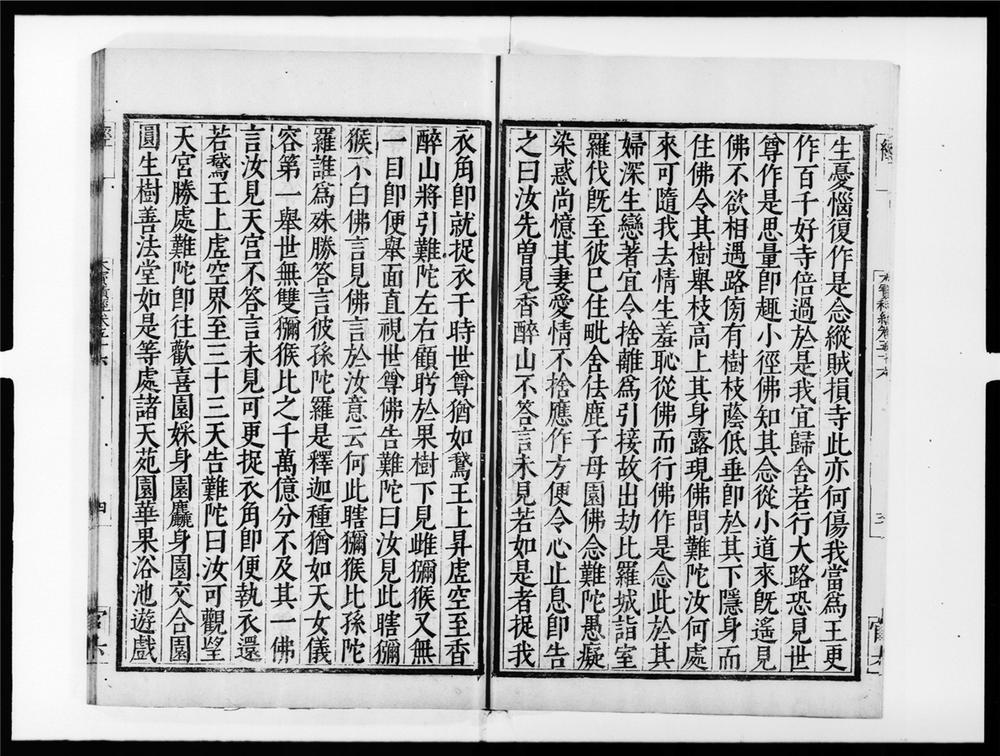 生憂惱復作是念縱賊損寺此亦何傷我當爲王更
作百千好寺倍過於是我宜歸舍若行大路恐見世
尊作是思量卽趣小徑佛知其念從小道來旣遙見
佛不欲相遇路傍有樹枝蔭低垂卽於其下隱身而
住佛令其樹舉枝高上其身露現佛問難陀汝何處
來可隨我去情生羞恥從佛而行佛作是念此於其
婦深生戀著宜令捨離爲引接故出劫比羅城詣室
羅伐旣至彼已住毗舍佉鹿子母園佛念難陀愚癡
染惑尚憶其妻愛情不捨應作方便令心止息卽告
之曰汝先曾見香醉山不答言未見若如是者捉我
衣角卽就捉衣于時世尊猶如鵞王上昇虛空至香
醉山將引難陀左右顧眄於果樹下見雌獼猴又無
一目卽便舉面直視世尊佛告難陀曰汝見此瞎獼
猴不白佛言見佛言於汝意云何此瞎獼猴比孫陀
羅誰爲殊勝答言彼孫陀羅是釋迦種猶如天女儀
容第一舉世無雙獼猴比之千萬億分不及其一佛
言汝見天宮不答言未見可更捉衣角卽便執衣還
若鵞王上虛空界至三十三天告難陀曰汝可觀望
天宮勝處難陀卽往歡喜園婇身園麤身園交合園
圓生樹善法堂如是等處諸天苑園華果浴池遊戲
四
官六